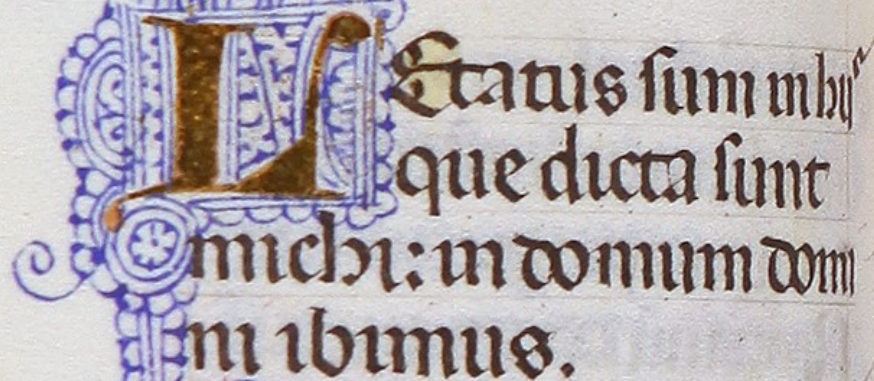 LEtatus sum in hijs
que dicta sunt
michi: in domum domi
ni ibimus.